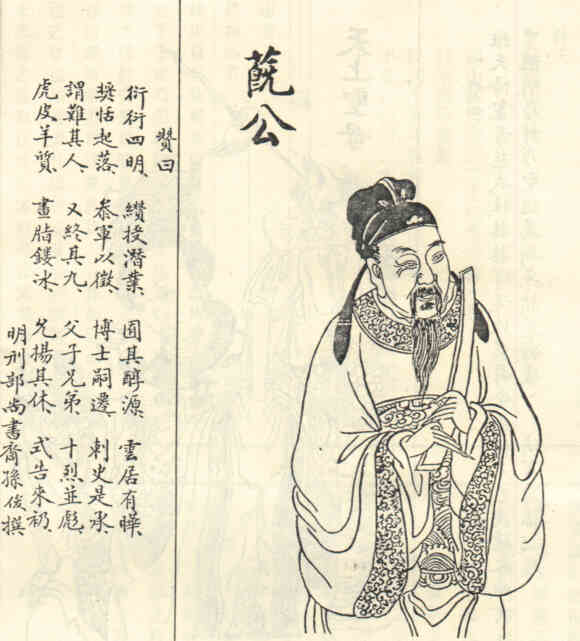 蔇公
贊曰
衎衎四明、纘投潛業、囿其醇源、雲居有曄、
獎恬起落、叅軍以徵、博士嗣遷、刺史是承、
謂難其人、又終其九、父子兄弟、十烈並彪、
虎皮羊質、畫脂鏤冰、允揚其休、式告來礽、
明刑部尚書齋孫俊撰